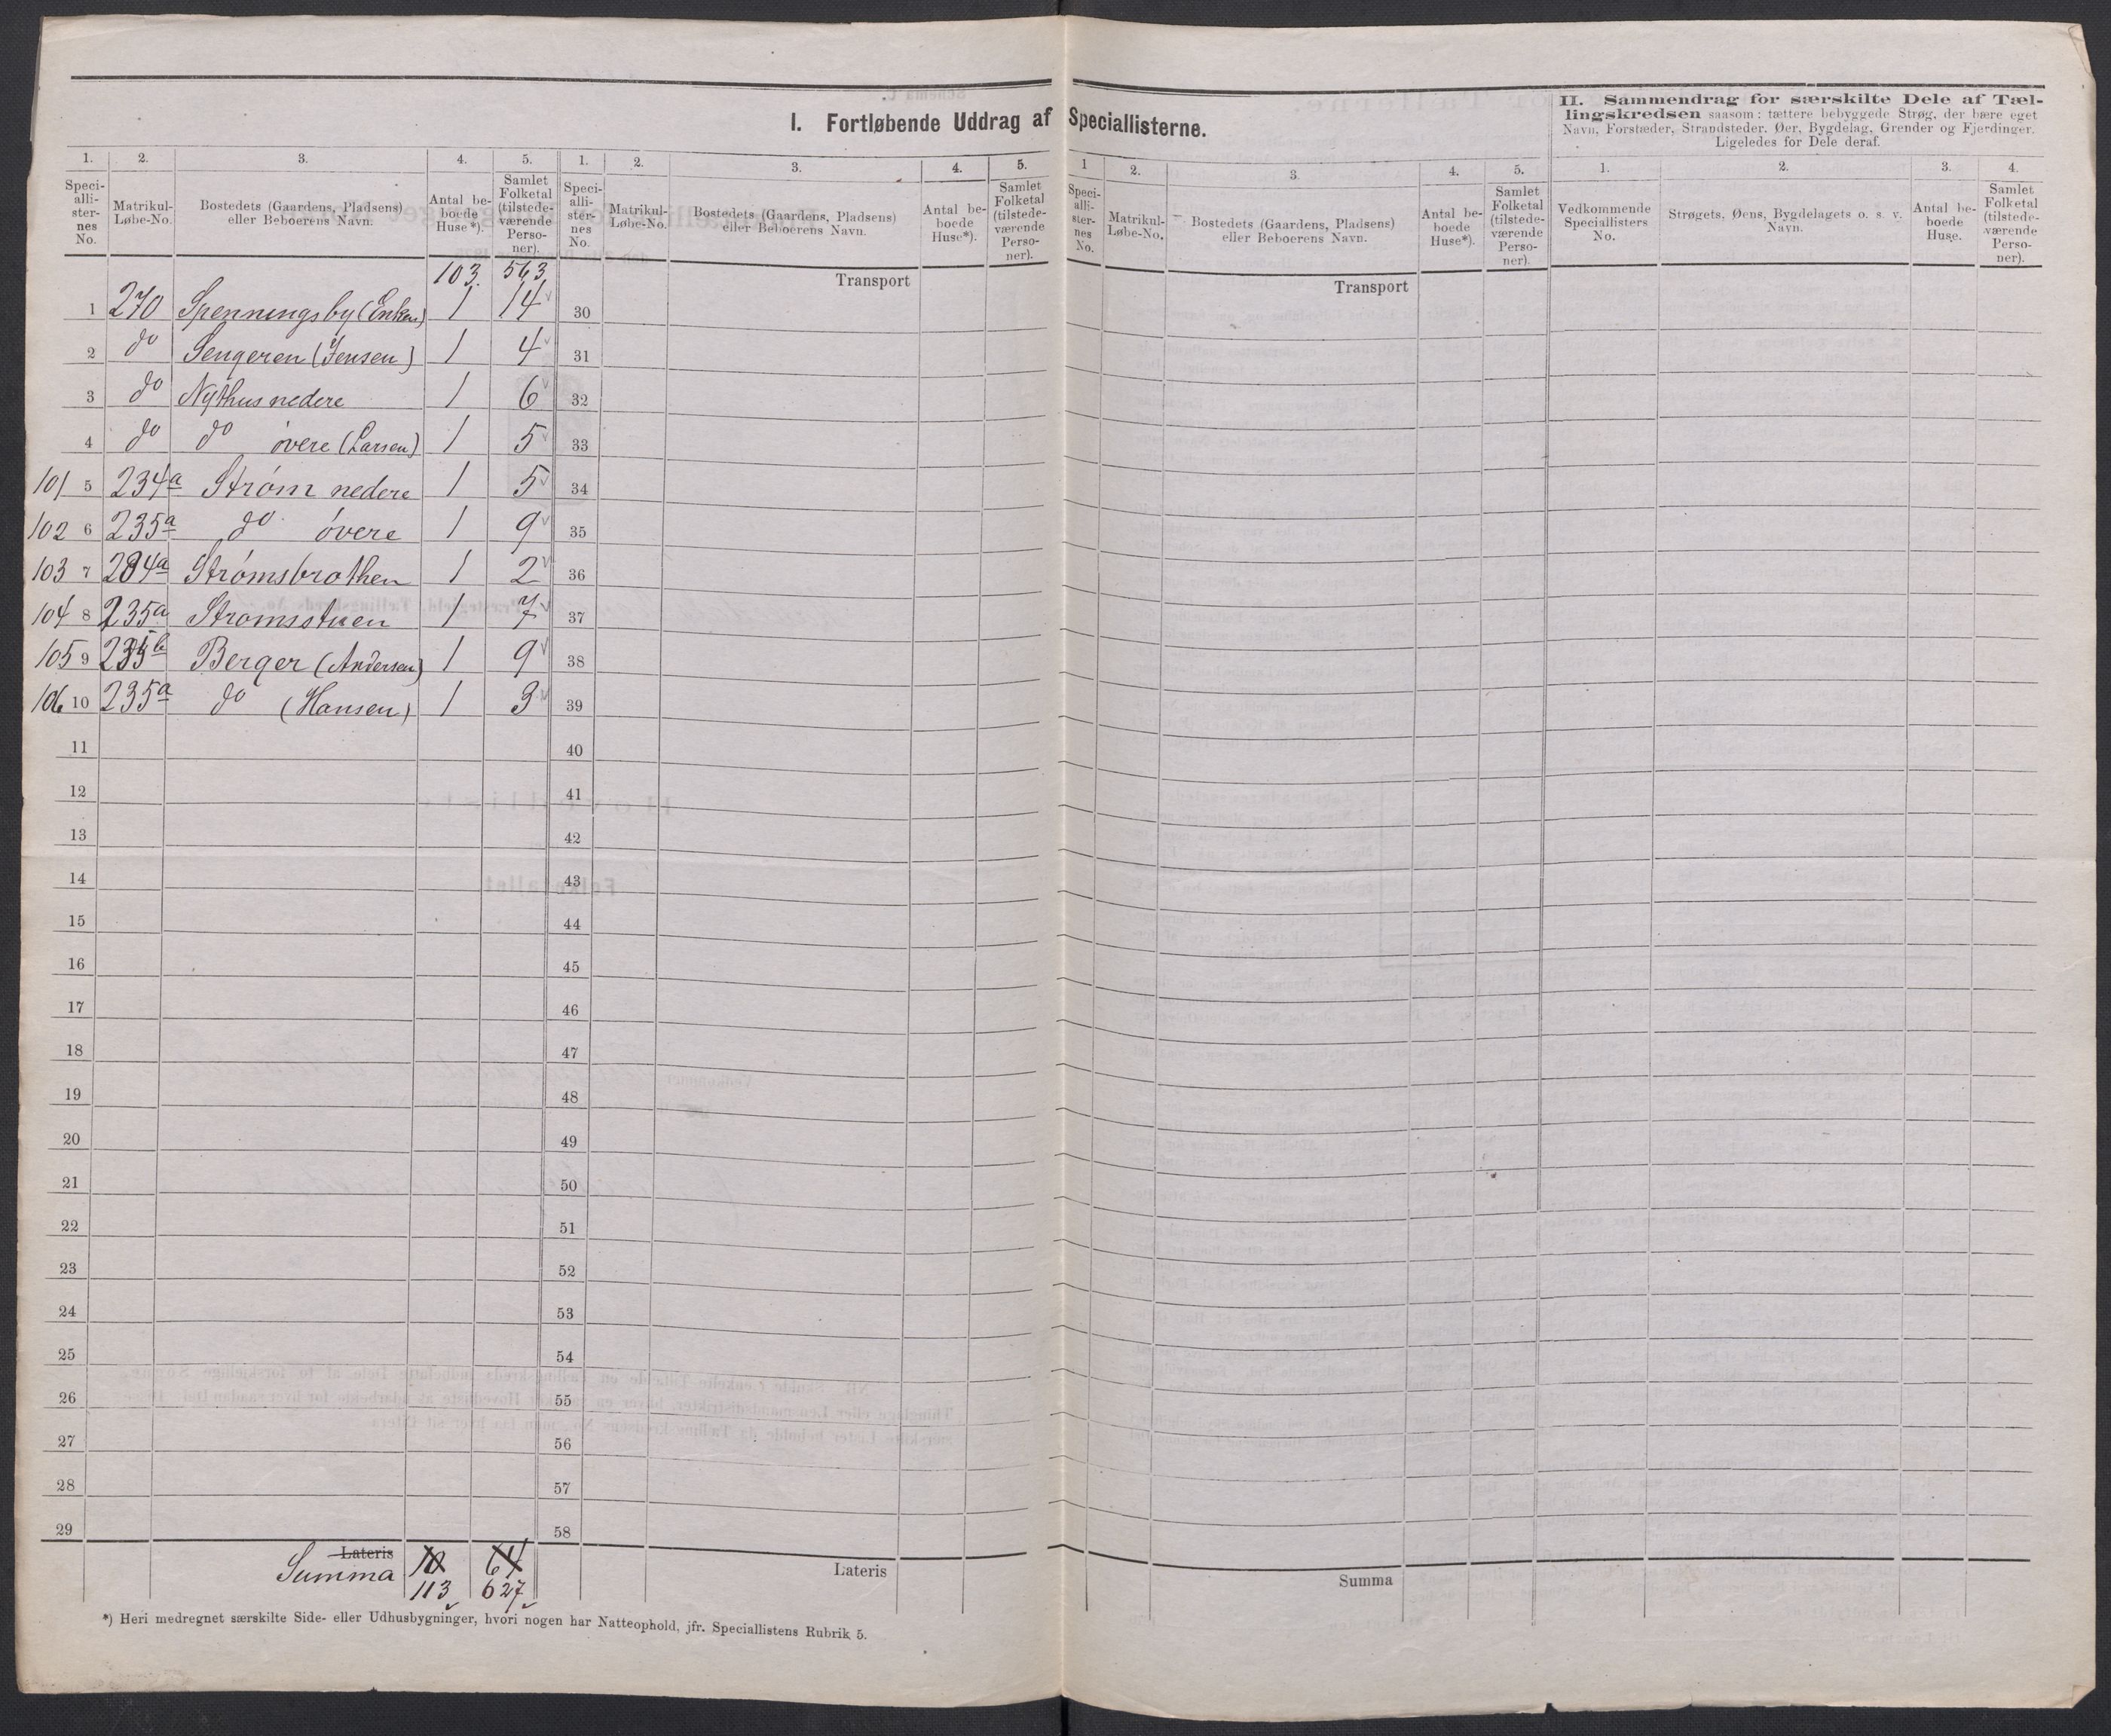 I. Fortløbende Uddrag af Speciallisterne.
1. 2. 3. 4. 5.
Speci-alli-ster-nes No. Matrikul-Løbe-No. Bostedets (Gaardens, Pladsens) eller Beboerens Navn. Antal be-boede Huse*). Samlet Folketal (tilstede-værende Perso-ner).
103. 563
1 270 Spenningsby (Enken) 1 14
2 do Sengeren (Jensen) 1 4
3 do Nythus nedere 1 6
4 do do övere (Larsen) 1 5
101 5 234a Strøm nedere 1 5
102 6 235a do övere 1 9
103 7 234a Strømsbrothen 1 2
104 8 235a Strømsstuen 1 7
105 9 235b Berger (Andersen) 1 9
106 10 235a do (Hansen) 1 3
11
12
13
14
15
16
17
18
19
20
21
22
23
24
25
26
27
28
29
Lateris 10 64
Summa 113 627
1. 2. 3. 4. 5.
Speci-alli-ster-nes No. Matrikul-Løbe-No. Bostedets (Gaardens, Pladsens) eller Beboerens Navn. Antal be-boede Huse*). Samlet Folketal (tilstede-værende Perso-ner).
Transport
30
31
32
33
34
35
36
37
38
39
40
41
42
43
44
45
46
47
48
49
50
51
52
53
54
55
56
57
58
Lateris
*) Heri medregnet særskilte Side- eller Udhusbygninger, hvori nogen har Natteophold, jfr. Speciallistens Rubrik 5.
1 2. 3. 4. 5.
Speci-alli-ster-nes No. Matrikul-Løbe-No. Bostedets (Gaardens, Pladsens) eller Beboerens Navn. Antal be-boede Huse*). Samlet Folketal (tilstede-værende Perso-ner).
Transport
Summa
II. Sammendrag for særskilte Dele af Tæl-
lingskredsen saasom: tættere bebyggede Strøg, der bære eget
Navn, Forstæder, Strandsteder, Øer, Bygdelag, Grender og Fjerdinger.
Ligeledes for Dele deraf.
1. 2. 3. 4.
Vedkommende Speciallisters No. Strøgets, Øens, Bygdelagets o. s. v. Navn. Antal be-boede Huse. Samlet Folketal (tilstede-værende Perso-ner).